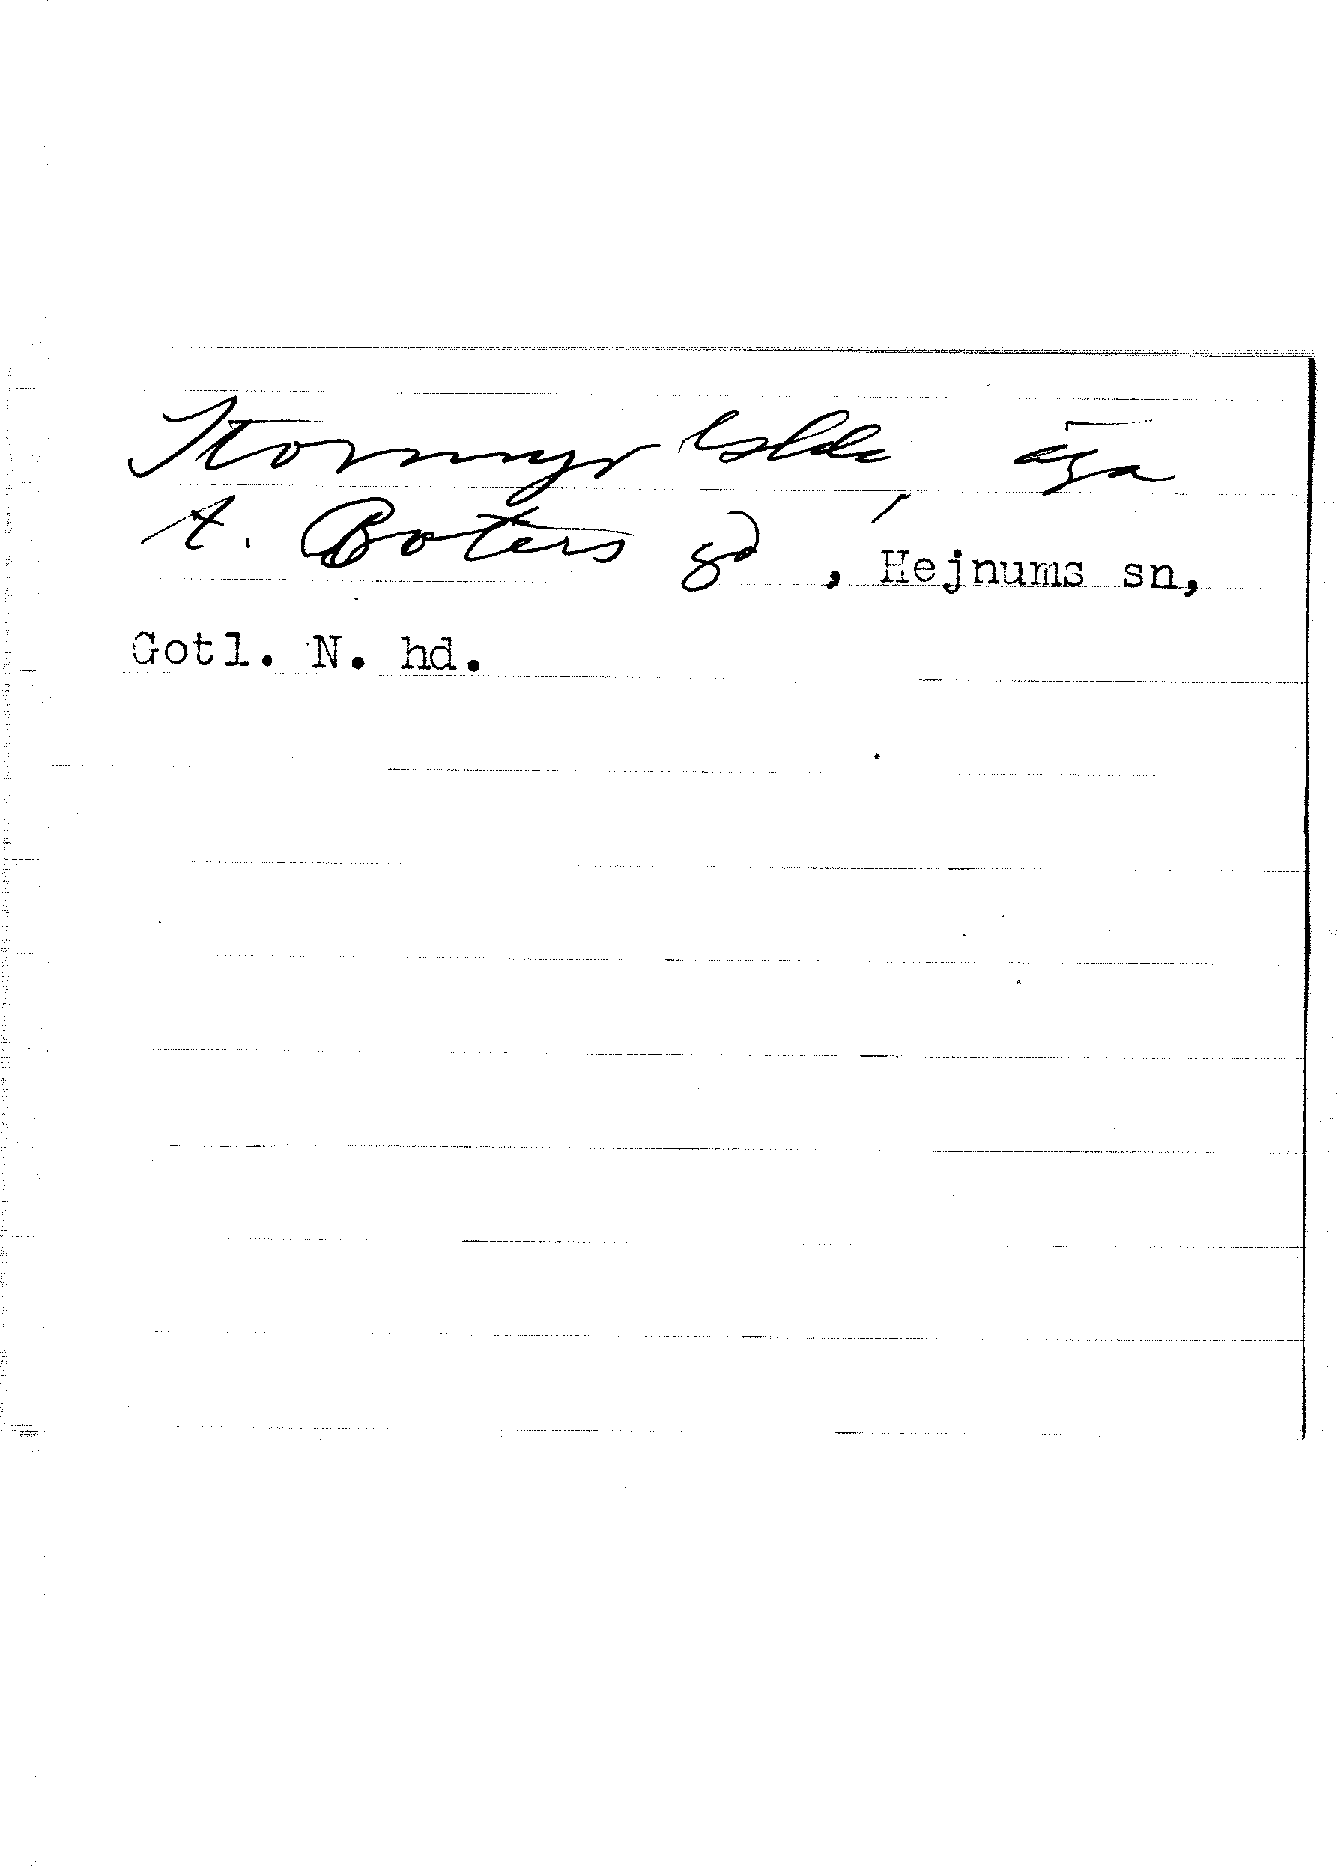 Stormyr äga
t. Boters gd, Hejnums sn,
Gotl. N. hd.